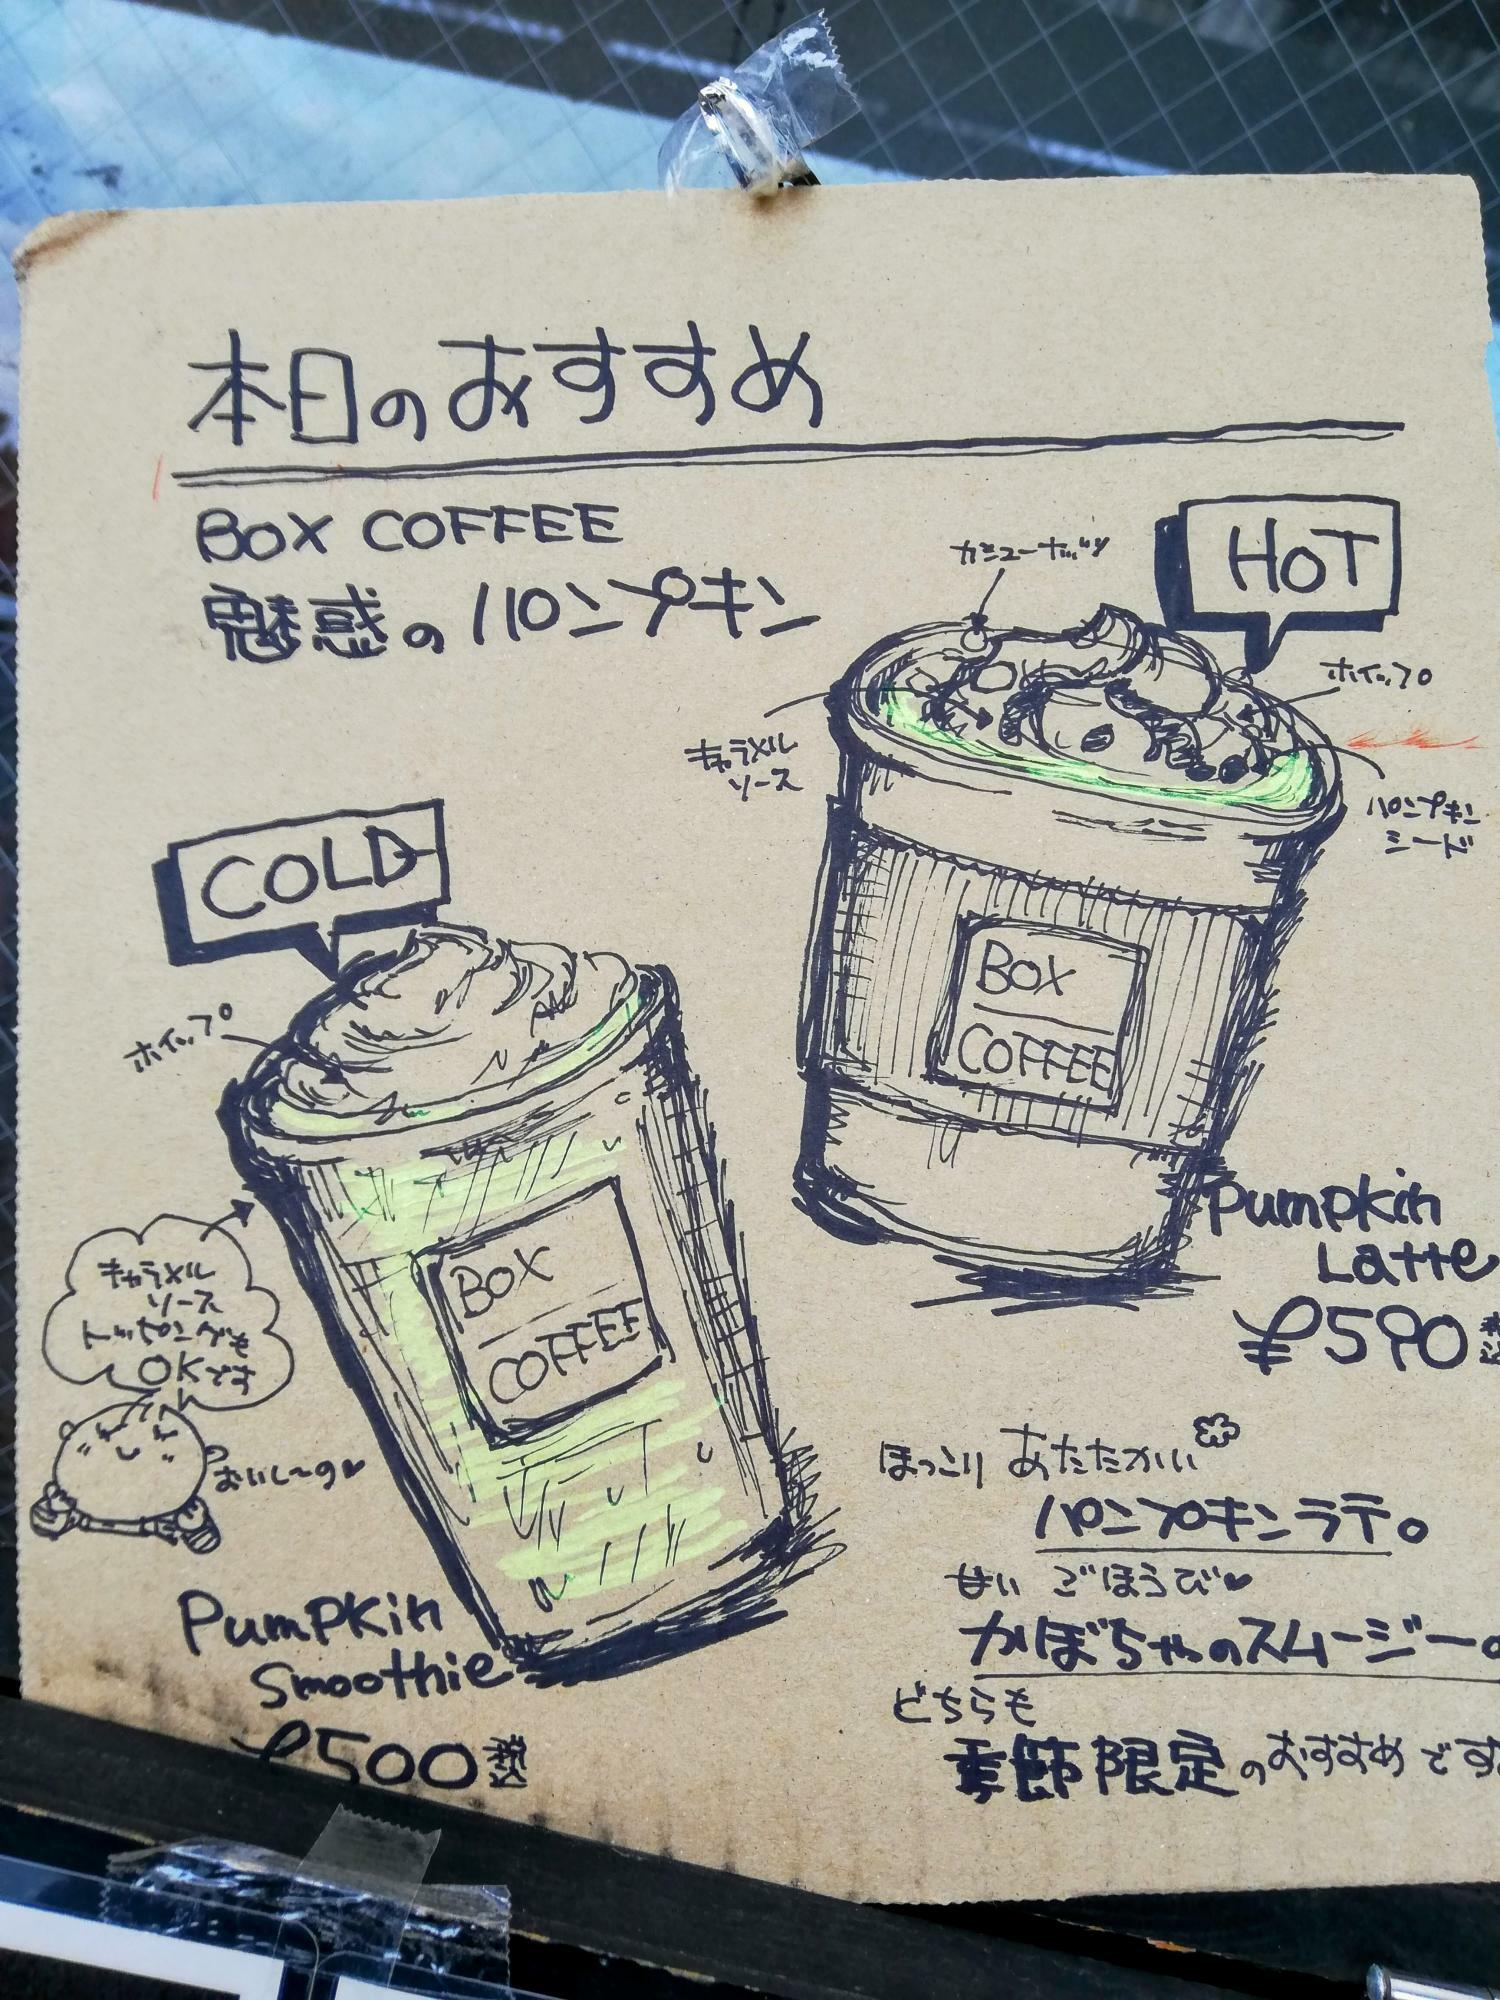 本日のおすすめ
BOX COFFEE
魅惑のパンプキン
HOT
カシューナッツ
ホイップ
キャラメル
ソース
パンプキン
シード
BOX
COFFEE
Pumpkin
Latte
¥590 税込
COLD
ホイップ
BOX
COFFEE
キャラメル
ソース
トッピングも
OKです
おいし〜の♥
Pumpkin
Smoothie
¥500 税込
ほっこり あたたかい
パンプキンラテ。
甘い ごほうび♥
かぼちゃのスムージー。
どちらも
季節限定のおすすめです